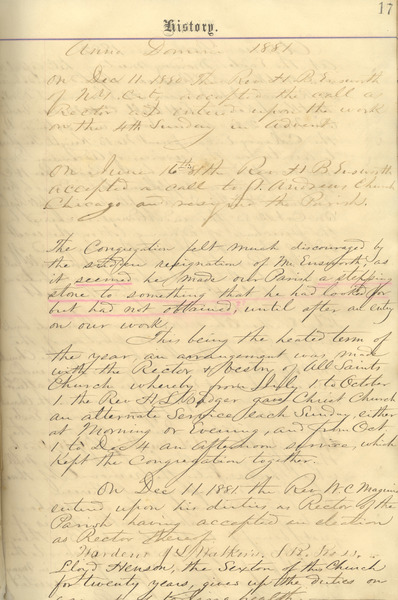 17
History.
Anno Domini 1881
On Dec 11. 1880 The Rev H. B. Ensworth
of accepted the call as
Rector and entered upon the work
on the 4th Sunday in Advent.
On June 16th 81 the Rev H B Ensworth
accepted a call to St. Andrews Church
Chicago and resigned the Parish.
The Congregation felt much discouraged by
the sudden resignation of Mr Ensworth, as
it seemed he made our Parish a stepping
stone to something that he had looked for
but had not obtained, until after an entry
on our work.
This being the heated term of
the year, an arrangement was made
with the Rector & Vestry of All Saints
Church whereby from July 1 to October
1 the Rev H. L. Badger gave Christ Church
an alternate Service each Sunday, either
at Morning or Evening, and from Oct
1 to Dec 4 an afternoon service, which
kept the Congregation together.
On Dec 11. 1881 the Rev W. C.
enterd upon his duties as Rector of the
Parish having accepted an election
as Rector thereof.
Wardens J S Watkins, J. R.
Lloyd Henson, the Sexton of this Church
for twenty years, gives up the duties on
health